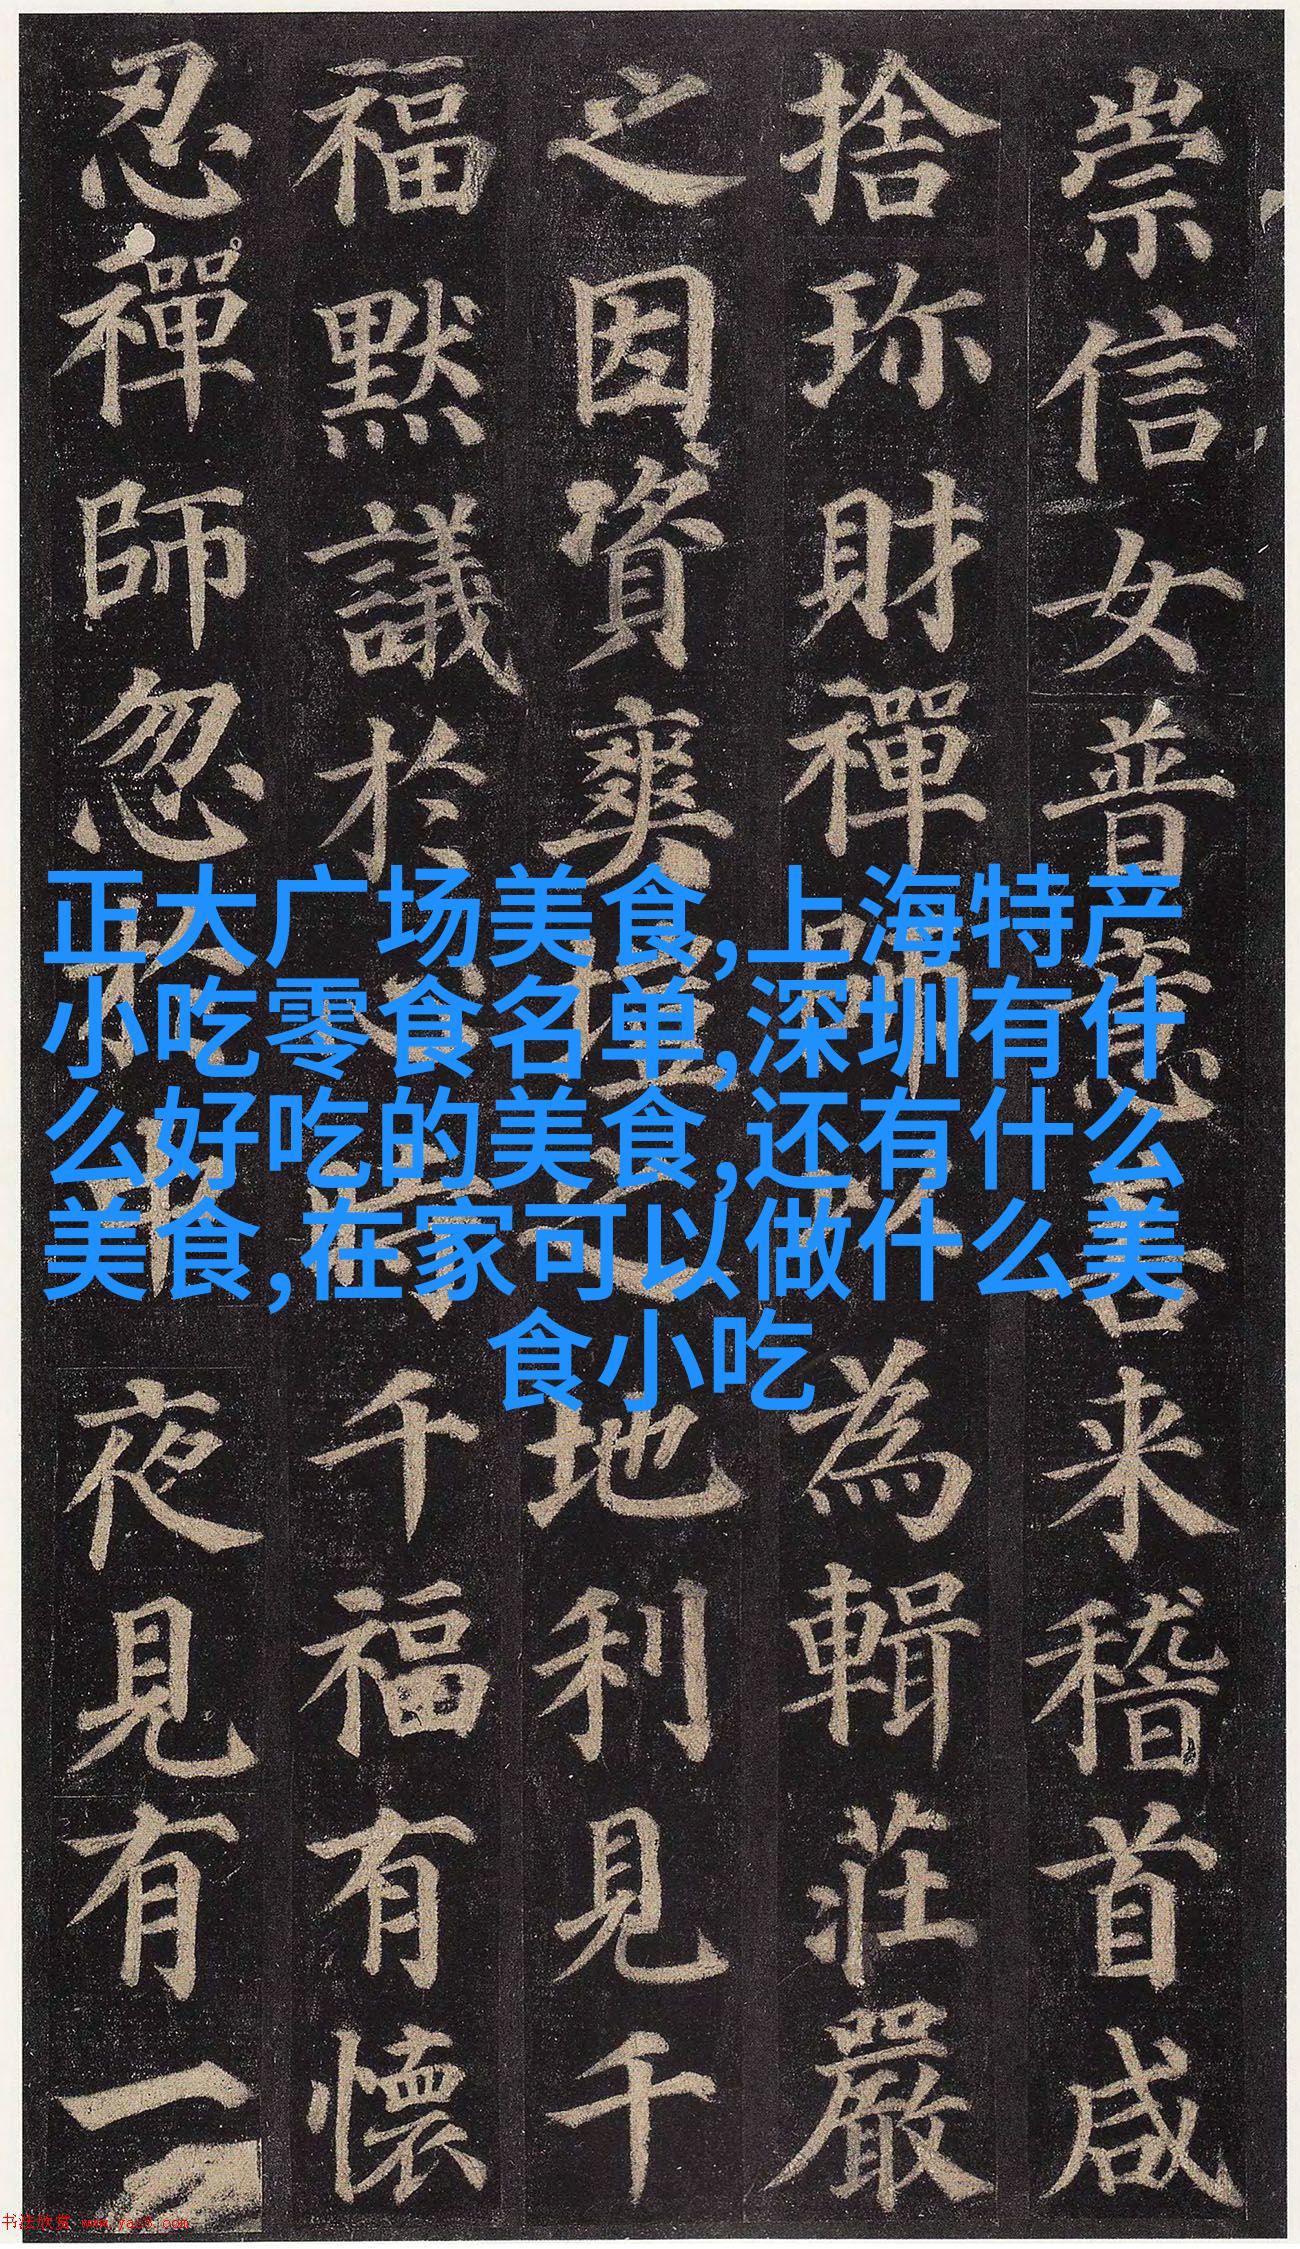 崇信女普意善来稽首咸
捨珎財禪師以為輯莊嚴
之因資爽塏之地利見千
福默議於心時千福有懷
忍禪師忽於中夜見有一
正大广场美食,上海特产
小吃零食名单,深圳有什
么好吃的美食,还有什么
美食,在家可以做什么美
食小吃
书法欣赏 www.yac8.com